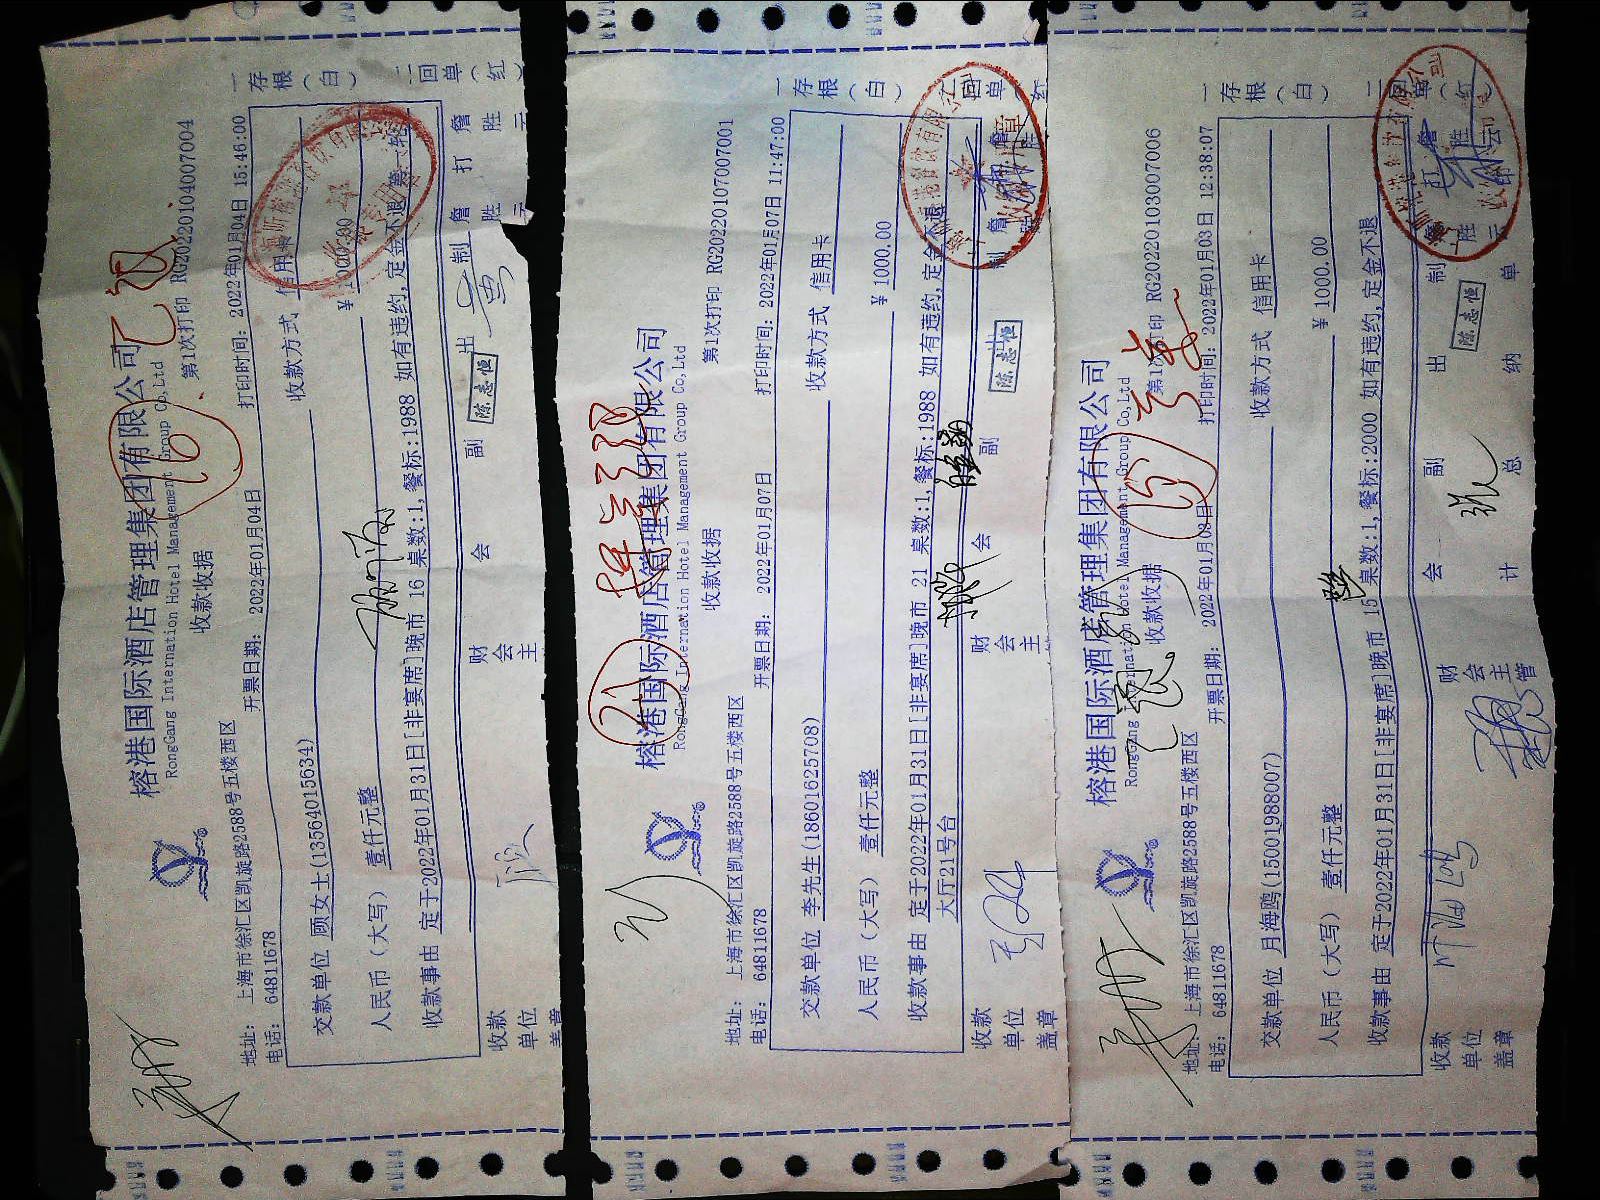 榕港国际酒店管理集团有限公司
RongGang International Hotel Management Group Co,Ltd
16
收款收据
第1次打印 RG20220104007004
地址: 上海市徐汇区凯旋路2588号五楼西区
电话: 64811678
开票日期: 2022年01月04日
打印时间: 2022年01月04日 15:46:00
交款单位 顾女士(13564015634)
收款方式 信用卡
人民币(大写) 壹仟元整
¥ 1000.00
收款事由 定于2022年01月31日[非宴席]晚市 16 桌数:1,餐标:1988 如有违约,定金不退
收款单位盖章
财会主
会
副
出
陈志恒
制 詹胜云
打 詹胜云
一存根(白) 二回单(红)
榕港国际酒店管理集团有限公司
RongGang International Hotel Management Group Co,Ltd
21
收款收据
第1次打印 RG20220107007001
地址: 上海市徐汇区凯旋路2588号五楼西区
电话: 64811678
开票日期: 2022年01月07日
打印时间: 2022年01月07日 11:47:00
交款单位 李先生(18601625708)
收款方式 信用卡
人民币(大写) 壹仟元整
¥ 1000.00
收款事由 定于2022年01月31日[非宴席]晚市 21 桌数:1,餐标:1988 如有违约,定金不退
大厅21号台
收款单位盖章
财会主
会
副
出
陈志恒
制 詹胜
一存根(白) 二回单(红
榕港国际酒店管理集团有限公司
RongGang International Hotel Management Group Co,Ltd
15
收款收据
第1次打印 RG20220103007006
地址: 上海市徐汇区凯旋路2588号五楼西区
电话: 64811678
开票日期: 2022年01月03日
打印时间: 2022年01月03日 12:38:07
交款单位 月海鸥(15001988007)
收款方式 信用卡
人民币(大写) 壹仟元整
¥ 1000.00
收款事由 定于2022年01月31日[非宴席]晚市 15 桌数:1,餐标:2000 如有违约,定金不退
收款单位盖章
财会主管
会计
副总
出纳
陈志恒
制单
打印
詹胜云
一存根(白) 二回单(红)